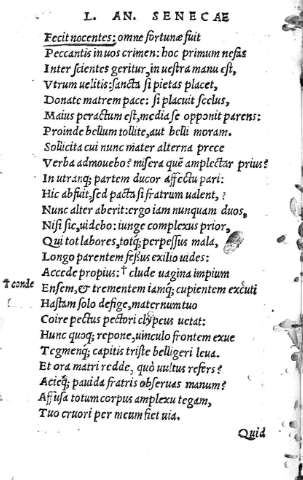 L. AN. SENECAE
Fecit nocentes: omne fortunæ fuit
Peccantis in uos crimen: hoc primum nefas
Inter scientes geritur, in uestra manu est,
Vtrum uelitis: sancta si pietas placet,
Donate matrem pace: si placuit scelus,
Maius peractum est, media se opponit parens:
Proinde bellum tollite, aut belli moram.
Sollicita cui nunc mater alterna prece
Verba admouebo? misera quẽ amplectar prius?
In utranq; partem ducor affectu pari:
Hic abfuit, sed pacta si fratrum ualent,
Nunc alter aberit: ergo iam nunquam duos,
Nisi sic, uidebo: iunge complexus prior,
Qui tot labores, totiq; perpessus mala,
Longo parentem fessus exilio uides:
Accede propius: † clude uagina impium
tonde
Ensem, & trementem iamq; cupientem excuti
Hastam solo defige, maternum tuo
Coire pectus pectori clypeus uetat:
Hunc quoq; repone, uinculo frontem exue
Tegmenq; capitis triste belligeri leua.
Et ora matri redde, quò uultus refers?
Acieq; pauida fratris obseruas manum?
Affusa totum corpus amplexu tegam,
Tuo cruori per meum fiet uia.
Quid